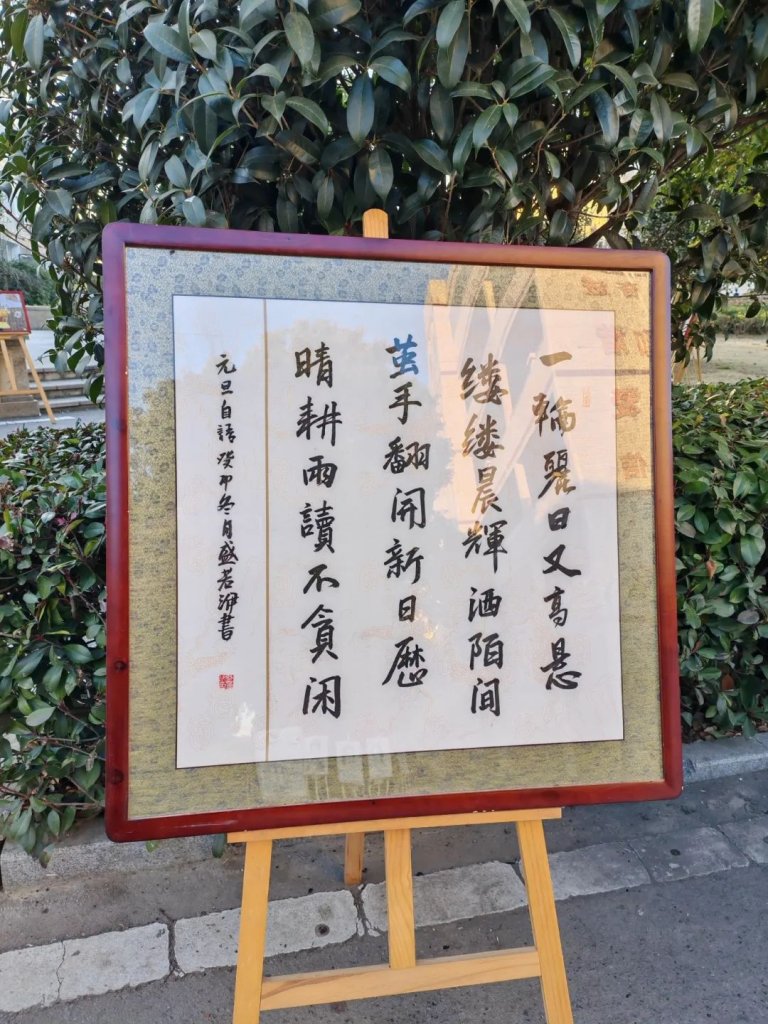 一輪麗日又高悬
缕缕晨輝洒陌间
茧手翻開新日歷
晴耕雨讀不貪闲
元旦自語癸卯冬月盛若渊書